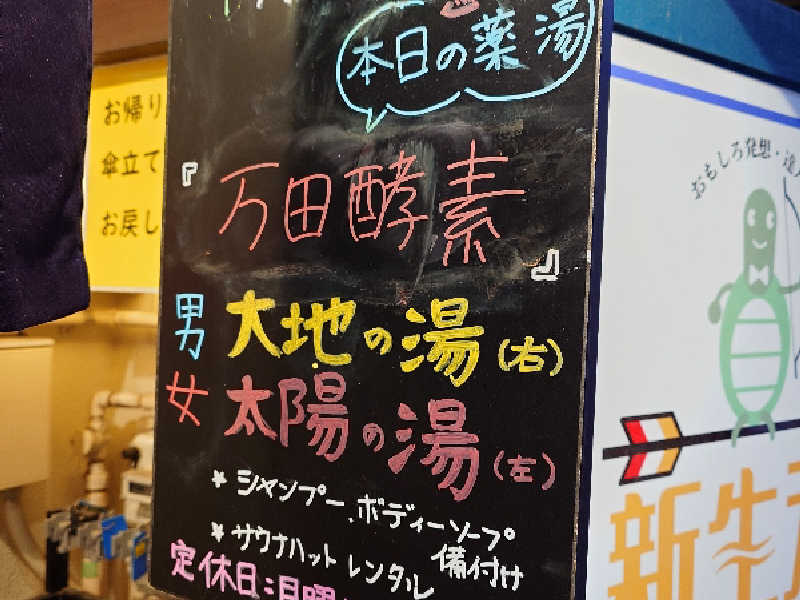 本日の薬湯
『万田酵素』
男 大地の湯(右)
女 太陽の湯(左)
* シャンプー、ボディーソープ
備付け
* サウナハットレンタル
定休日:月曜
お帰り
傘立て
お戻し
おもしろ発想・達人
新生